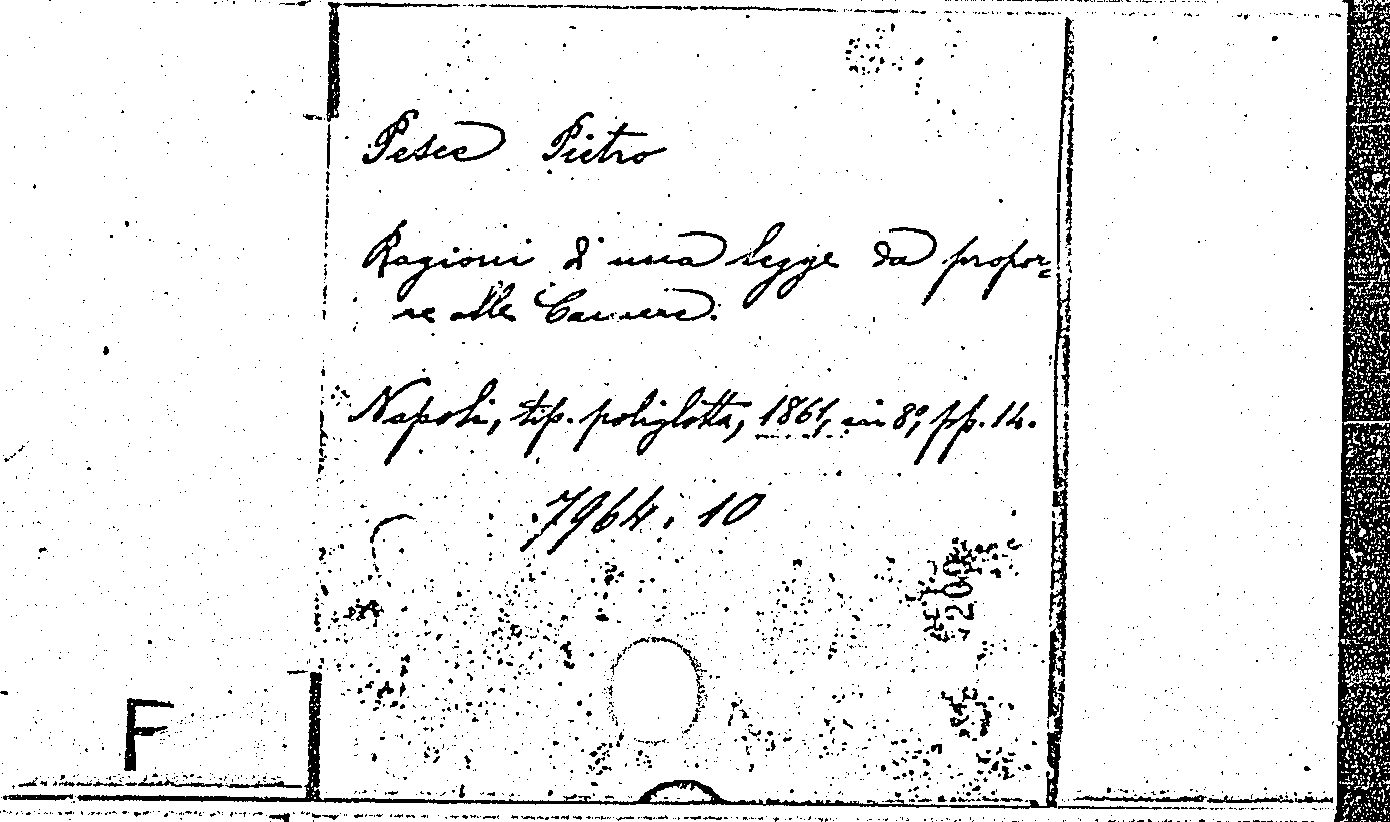 Pesce Pietro
Ragioni d'una legge da propor-
re alle Camere.
Napoli, tip. poliglotta, 1861, in 8º, pp. 14.
7964. 10
200
F